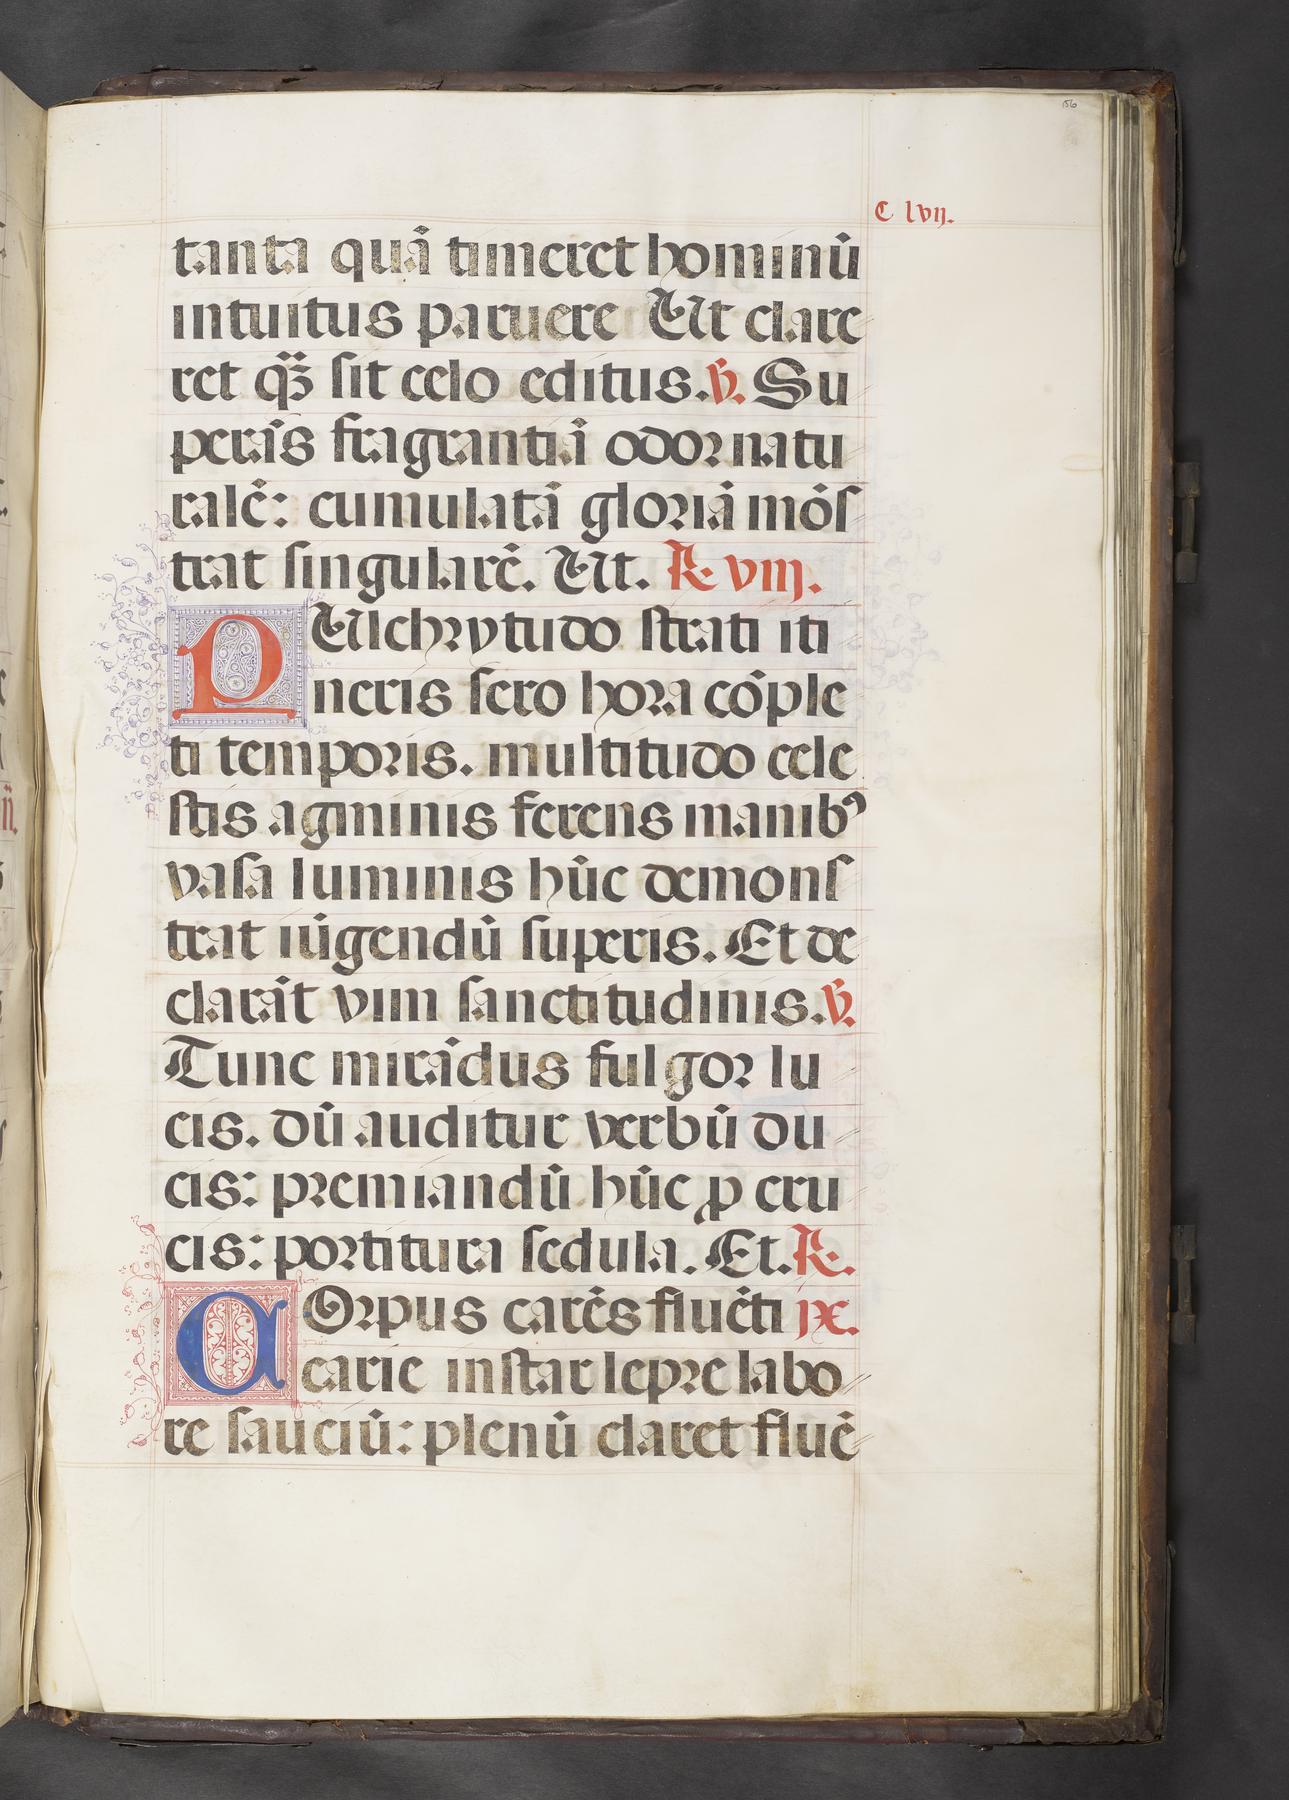 156
C lvij.
tanta quā timeret hominū
intuitus paruere Ut clare
ret qꝫ̄ sit celo editus. ℣. Su
perās fragrantiā odor natu
ralē: cumulatā gloriā mōs
trat singularē. Ut. ℟. viij.
PUlchrytudo strati iti
neris sero hora cōple
ti temporis. multitudo cele
stis agminis ferens manibꝰ
vasa luminis hūc demons
trat iūgendū superis. Et de
clarāt vim sanctitudinis. ℣.
Tunc mirādus fulgor lu
cis. dū auditur verbū du
cis: premiandū hūc ꝓ cru
cis: portitura sedula. Et. ℟.
COrpus carēs fluēti ix.
carie instar lepre labo
re sauciū: plenū claret fluē